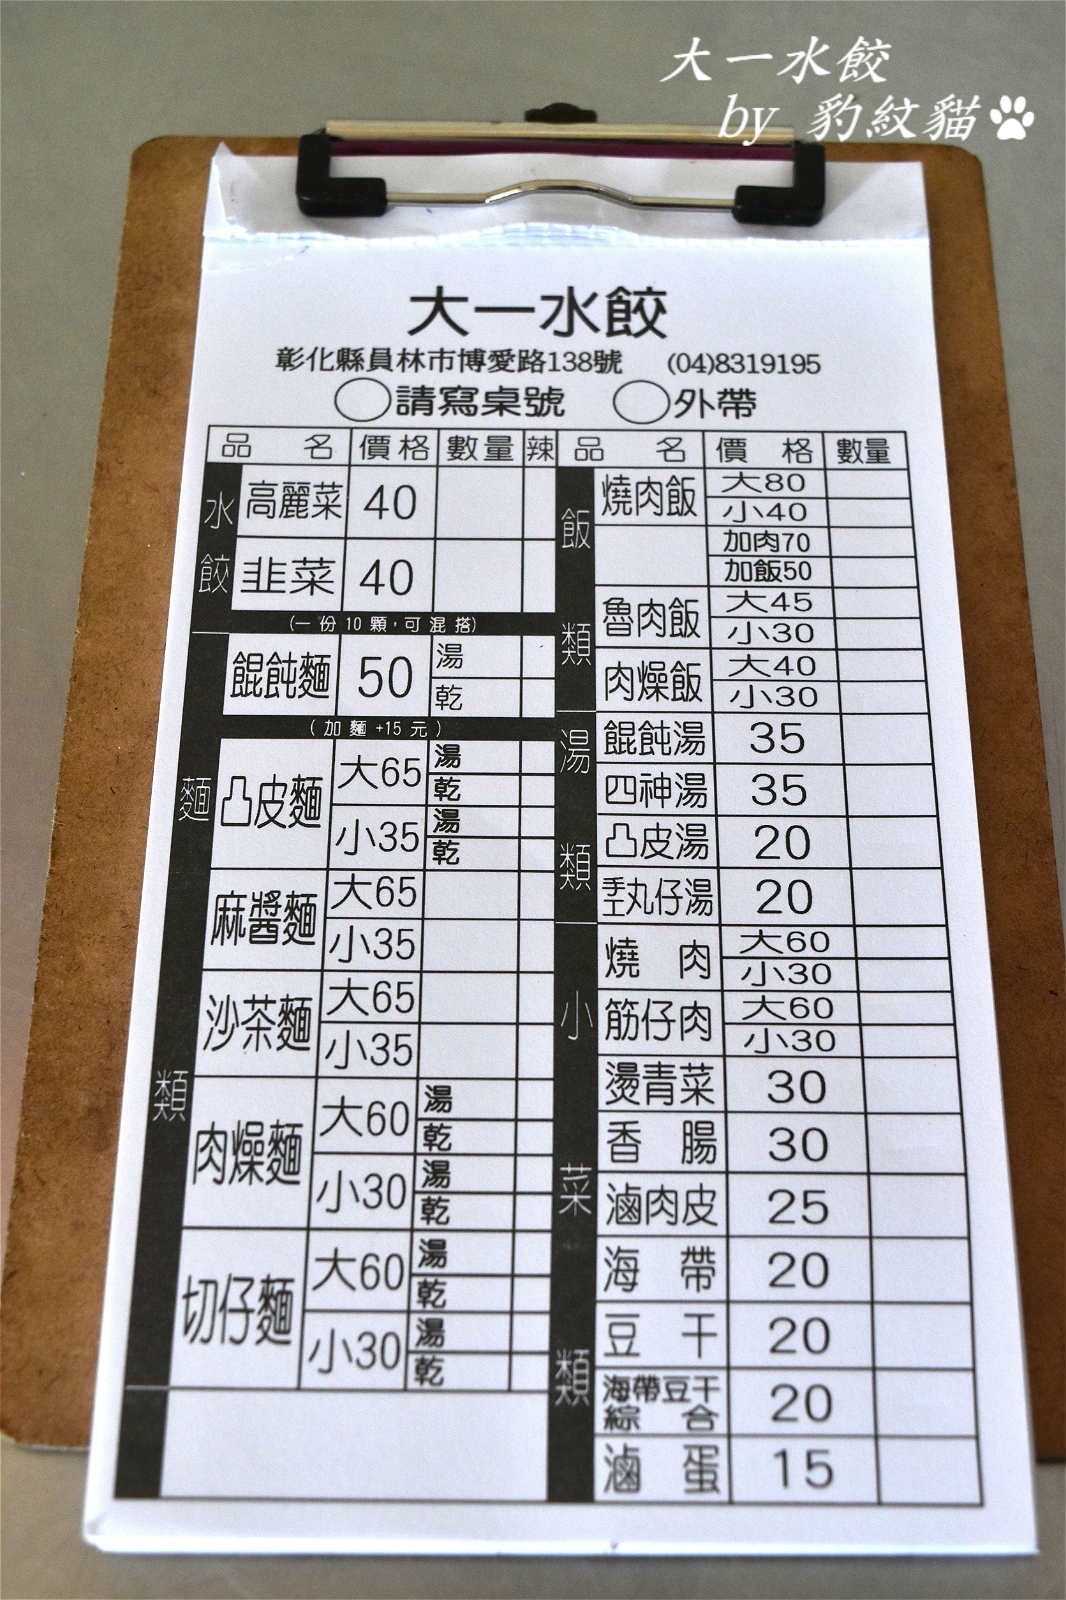 大一水餃
by 豹紋貓
大一水餃
彰化縣員林市博愛路138號 (04)8319195
請寫桌號 外帶
品名 價格 數量 辣
水餃
高麗菜 40
韭菜 40
(一份10顆,可混搭)
麵類
餛飩麵 50 湯
乾
(加麵+15元)
凸皮麵 大65 湯
乾
小35 湯
乾
麻醬麵 大65
小35
沙茶麵 大65
小35
肉燥麵 大60 湯
乾
小30 湯
乾
切仔麵 大60 湯
乾
小30 湯
乾
品名 價格 數量
飯類
燒肉飯 大80
小40
加肉70
加飯50
魯肉飯 大45
小30
肉燥飯 大40
小30
湯類
餛飩湯 35
四神湯 35
凸皮湯 20
手工丸仔湯 20
小菜類
燒肉 大60
小30
筋仔肉 大60
小30
燙青菜 30
香腸 30
滷肉皮 25
海帶 20
豆干 20
海帶豆干
綜合 20
滷蛋 15